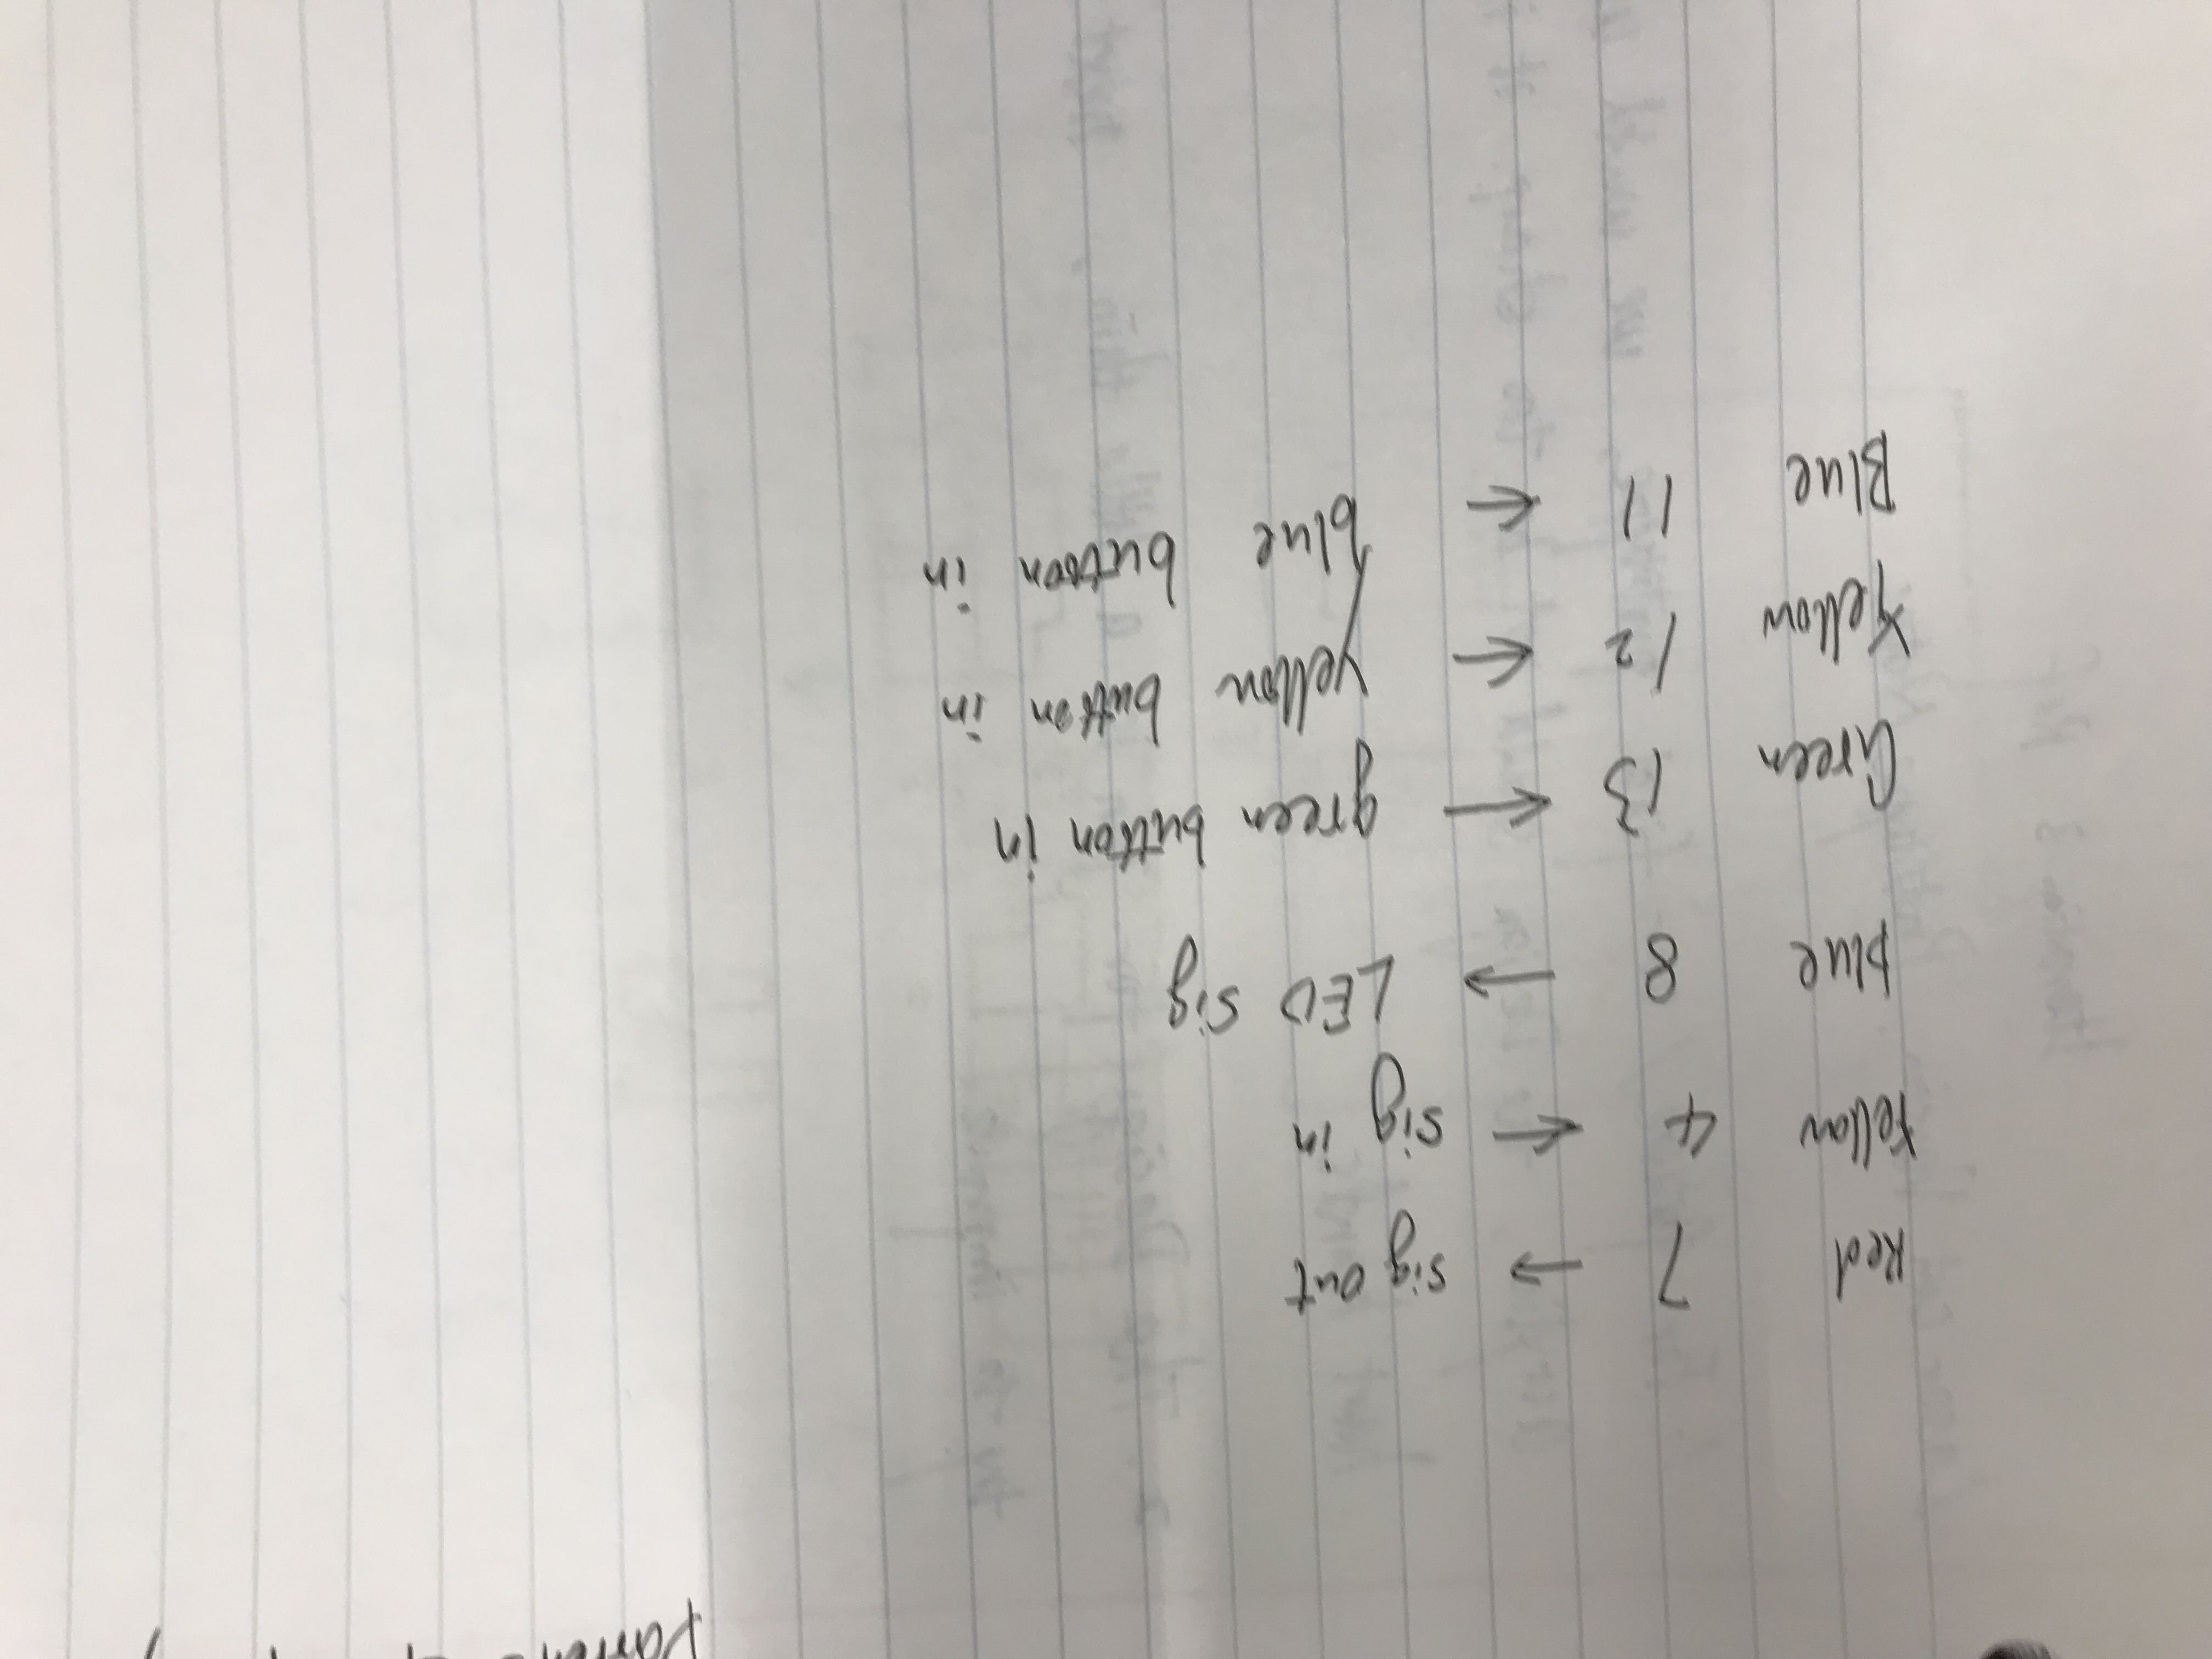 Red 7 → sig out
Yellow 4 ← sig in
blue 8 → LED sig
Green 13 ← green button in
Yellow 12 ← yellow button in
Blue 11 ← blue button in